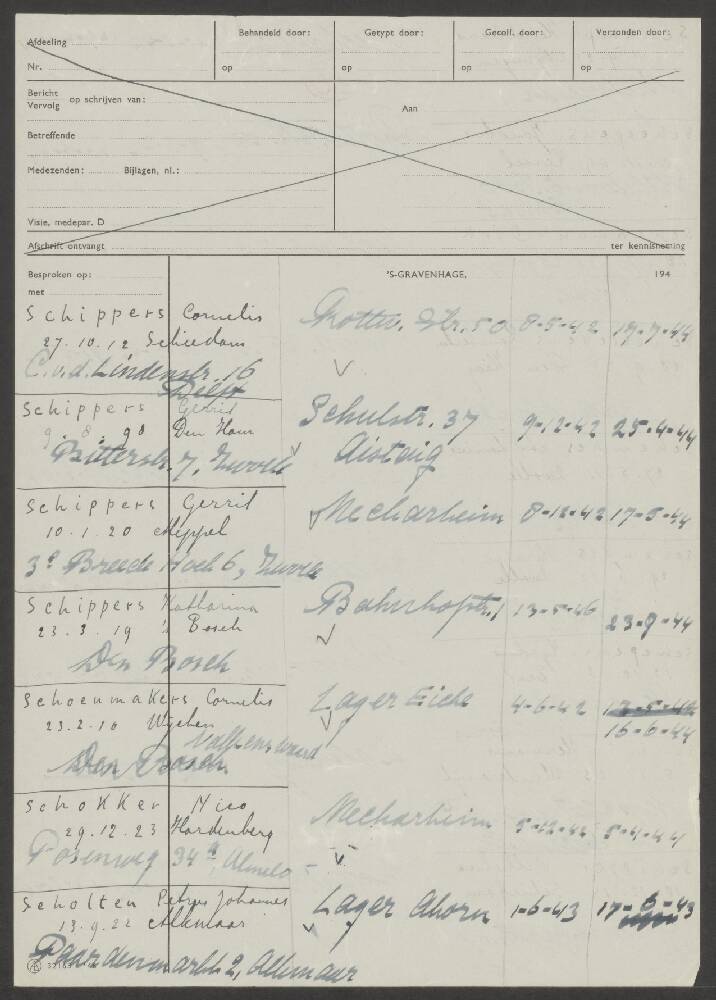 Afdeeling
Nr.
Behandeld door:
op
Getypt door:
op
Gecoll. door:
op
Verzonden door:
op
Bericht
Vervolg op schrijven van:
Betreffende
Medezenden: Bijlagen, nl.:
Visie, medepar. D
Aan
Afschrift ontvangt ter kennisneming
Besproken op:
met
'S-GRAVENHAGE, 194
Schippers Cornelis
27.10.12 Schiedam
C.v.d. Lindenstr. 16
Delft
Str. 50 8-5-42 19-7-44
Schippers Gerrit
9.8.90 Den Ham
Bitterstr. 7, Zwolle
Schulstr. 37 9-12-42 25-4-44
Aistaig
Schippers Gerrit
10.1.20 Meppel
3e Breede Hoek 6, Zwolle
Neckarheim 8-12-42 17-5-44
Schippers Katharina
23.3.19 's Bosch
Den Bosch
Bahnhofstr. 1 13-5-46 23-9-44
Schoenmakers Cornelis
23.2.10 Wychen
Valkenswaard
Den Bosch
Lager Eiche 4-6-42
16-6-44
Schokker Nico
29.12.23 Hardenberg
34a, Almelo
Neckarheim 5-12-42 5-4-44
Scholten Petrus Johannes
13.9.22 Alkmaar
Paardenmarkt 2, Alkmaar
Lager Ahorn 1-6-43 17-6-43